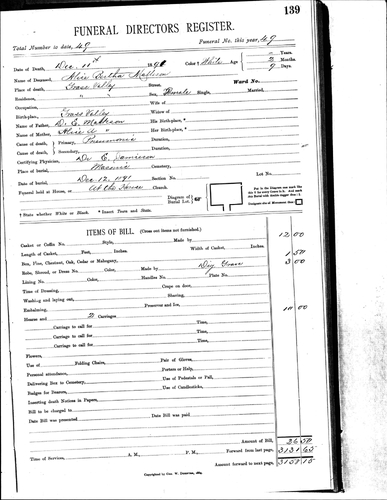 139
FUNERAL DIRECTORS REGISTER.
Total Number to date, 49 Funeral No. this year, 49
Date of Death, Dec 11th 1891 Color † White Age Years.
2 Months.
9 Days.
Name of Deceased, Alice Bertha
Place of death, Grass Valley Street. Ward No.
Residence, " " Sex, Female Single, Married,
Occupation, Wife of
Birth-place, Grass Valley Widow of
Name of Father, E. His Birth-place, *
Name of Mother, Alice Her Birth-place, *
Cause of death, Primary, Pneumonia Duration,
Cause of death, Secondary, Duration,
Certifying Physician, Dr E. Jamieson
Place of burial, Masonic Cemetery,
Date of burial, Dec 12, 1891 Section No. Lot No.
Funeral held at House or At the House Church.
Diagram of Burial Lot.
† State whether White or Black. * Insert Town and State.
ITEMS OF BILL. (Cross out items not furnished.)
Casket or Coffin No. Style, Made by 12 00
Length of Casket, Feet, Inches. Width of Casket, Inches.
Box, Pine, Chestnut, Oak, Cedar or Mahogany, 1 50
Robe, Shroud, or Dress No. Color, Made by 3 00
Lining No. Color, Handles No. Plate No.
Time of Dressing, Crape on door,
Washing and laying out, Shaving,
Embalming, Preserver and Ice,
Hearse and 2 Carriages 10 00
Carriage to call for Time,
Carriage to call for Time,
Carriage to call for Time,
Flowers,
Use of Folding Chairs, Pair of Gloves,
Personal attendance, Porters or Help,
Delivering Box to Cemetery, Use of Pedestals or Pall,
Badges for Bearers, Use of Candlesticks,
Inserting death Notices in Papers,
Bill to be charged to
Date Bill was presented Date Bill was paid
Amount of Bill, 26 50
Time of Services, A. M., P. M., Forward from last page, 3131 65
Amount forward to next page,